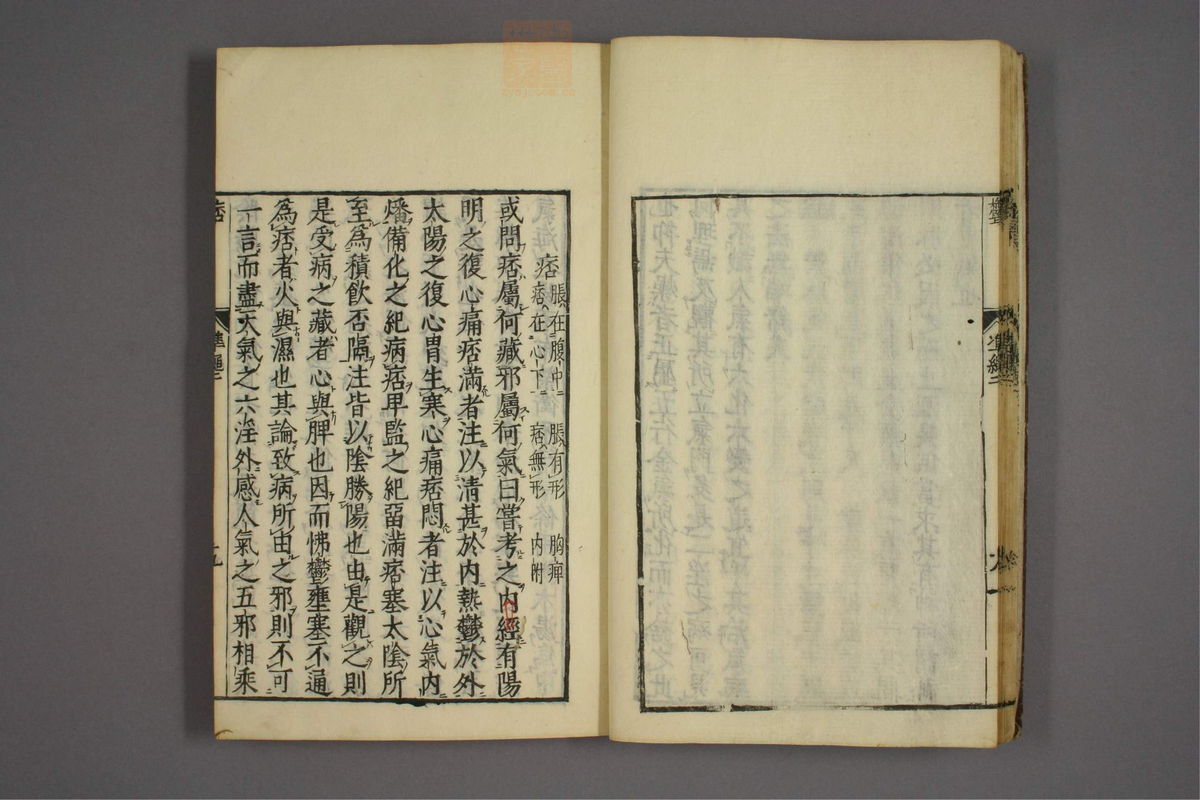 鬱
準繩二
痞 脹在腹中 痞在心下 脹有形 痞無形 胸痺條內附
或問痞屬何藏邪屬何氣曰嘗考之內經有陽
明之復心痛痞滿者注以清甚於內熱鬱於外
太陽之復心胃生寒心痛痞悶者注以心氣內
燔備化之紀病痞卑監之紀留滿痞塞太陰所
至為積飲否隔注皆以陰勝陽也由是觀之則
是受病之藏者心與脾也因而怫鬱壅塞不通
為痞者火與濕也其論致病所由之邪則不可
一言而盡天氣之六淫外感人氣之五邪相乘
痞
準繩二
九